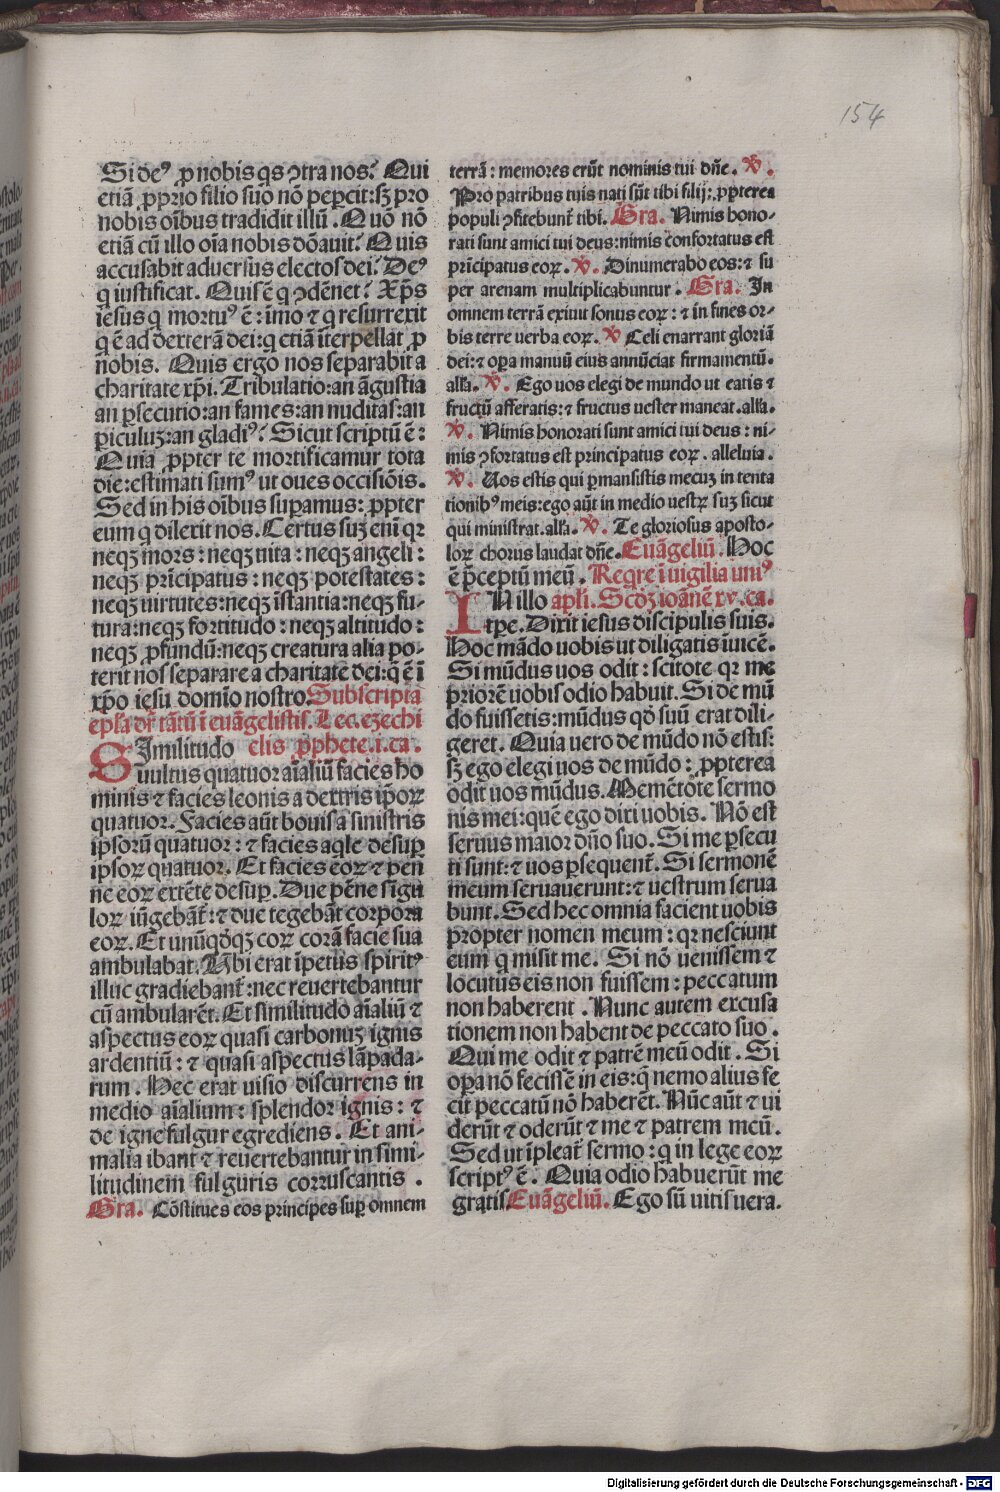 154
Si deꝰ ꝓ nobis qs ꝯtra nos? Qui
etiā ꝓprio filio suo nō peꝑcit: sꝫ pro
nobis oībus tradidit illū. Quō nō
etiā cū illo oīa nobis dōauit? Quis
accusabit aduersus electos dei? Deꝰ
q iustificat. Quis ē q ꝯdēnet? Xp̄s
iesus q mortuꝰ ē: īmo ⁊ q resurrexit
q ē ad dexterā dei: q etiā īterpellat ꝓ
nobis. Quis ergo nos separabit a
charitate xp̄i. Tribulatio: an āgustia
an ꝑsecutio: an fames: an nuditas: an
ꝑiculuꝫ: an gladiꝰ? Sicut scriptū ē:
Quia ꝓpter te mortificamur tota
die: estimati sumꝰ ut oues occisiōis.
Sed in his oībus suꝑamus: ꝓpter
eum q dilexit nos. Certus suꝫ eni qꝛ
neqꝫ mors: neqꝫ uita: neqꝫ angeli:
neqꝫ prīcipatus: neqꝫ potestates:
neqꝫ uirtutes: neqꝫ īstantia: neqꝫ fu-
tura: neqꝫ fortitudo: neqꝫ altitudo:
neqꝫ ꝓfundū: neqꝫ creatura alia po-
terit nos separare a charitate dei: q ē ī
xp̄o iesu domīo nostro. Subscripta
epl̄a dr̄ tātū ī euāgelistis. Lec. ezechi
SImilitudo elis ꝓphete. i. ca.
uultus quatuor aīaliū facies ho
minis ⁊ facies leonis a dextris ip̄oꝝ
quatuor. Facies aūt bouis a sinistris
ipsorū quatuor: ⁊ facies aqle desuꝑ
ipsoꝝ quatuor. Et facies eoꝝ ⁊ pen
ne eoꝝ extēte desuꝑ. Due pēne sigu
loꝝ iūgebāt̄: ⁊ due tegebāt corpora
eoꝝ. Et unūqdqꝫ eoꝝ corā facie sua
ambulabat. Ubi erat īpetus spiritꝰ
illuc gradiebant̄: nec reuertebantur
cū ambularēt. Et similitudo aīaliū ⁊
aspectus eoꝝ quasi carbonuꝫ ignis
ardentiū: ⁊ quasi aspectus lāpada-
rum. Hec erat uisio discurrens in
medio aīalium: splendor ignis: ⁊
de igne fulgur egrediens. Et ani-
malia ibant ⁊ reuertebantur in simi-
litudinem fulguris corruscantis.
Gra. Cōstitues eos principes suꝑ omnem
terrā: memores erūt nominis tui dn̄e. ℣.
Pro patribus tuis nati sūt tibi filij: ꝓpterea
populi ꝯfitebunt̄ tibi. Gra. Nimis hono-
rati sunt amici tui deus: nimis confortatus est
prīcipatus eoꝝ. ℣. Dinumerabo eos: ⁊ su
per arenam multiplicabuntur. Gra. In
omnem terrā exiuit sonus eoꝝ: ⁊ in fines or-
bis terre uerba eoꝝ. ℣ Celi enarrant gloriā
dei: ⁊ oꝑa manuū eius annūciat firmamentū.
all̄a. ℣. Ego uos elegi de mundo ut eatis ⁊
fructū afferatis: ⁊ fructus uester maneat. all̄a.
℣. Nimis honorati sunt amici tui deus: ni-
mis ꝯfortatus est principatus eoꝝ. alleluia.
℣. Uos estis qui ꝑmansistis mecuꝫ in tenta
tionibꝰ meis: ego aūt in medio uestꝝ suꝫ sicut
qui ministrat. all̄a. ℣. Te gloriosus aposto-
loꝝ chorus laudat dn̄e. Euāgeliū. Hoc
ē p̄ceptū meū. Reqre ī uigilia uniꝰ
IN illo apl̄i. Scd̄ꝫ ioānē xv. ca.
tp̄e. Dixit iesus discipulis suis.
Hoc mādo uobis ut diligatis īuicē.
Si mūdus uos odit: scitote qꝛ me
priorē uobis odio habuit. Si de mū
do fuissetis: mūdus qd̄ suū erat dili-
geret. Quia uero de mūdo nō estis:
sꝫ ego elegi uos de mūdo: ꝓpterea
odit uos mūdus. Memētote sermo
nis mei: quē ego dixi uobis. Nō est
seruus maior dn̄o suo. Si me ꝑsecu
ti sunt: ⁊ uos ꝑsequent̄. Si sermonē
meum seruauerunt: ⁊ uestrum serua
bunt. Sed hec omnia facient uobis
propter nomen meum: qꝛ nesciunt
eum q misit me. Si nō uenissem ⁊
locutus eis non fuissem: peccatum
non haberent. Nunc autem excusa
tionem non habent de peccato suo.
Qui me odit ⁊ patrē meū odit. Si
oꝑa nō fecissē in eis: q̄ nemo alius fe
cit peccatū nō haberēt. Nūc aūt ⁊ ui
derūt ⁊ oderūt ⁊ me ⁊ patrem meū.
Sed ut īpleat̄ sermo: q in lege eoꝝ
scriptꝰ ē. Quia odio habuerūt me
gratis Euāgeliū. Ego sū uitis uera.
Digitalisierung gefördert durch die Deutsche Forschungsgemeinschaft - DFG